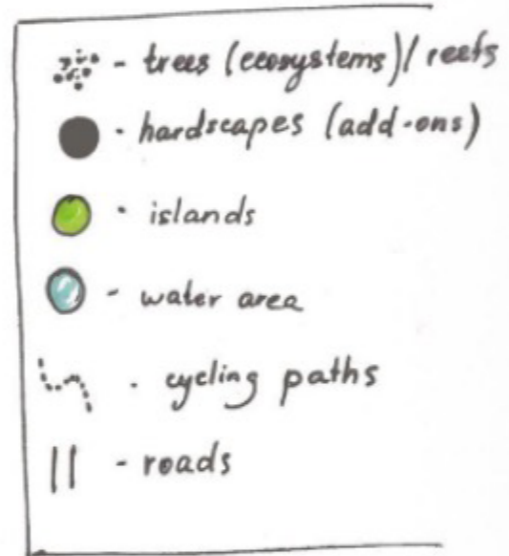 - trees (ecosystems)/ reefs
- hardscapes (add-ons)
- islands
- water area
- cycling paths
- roads